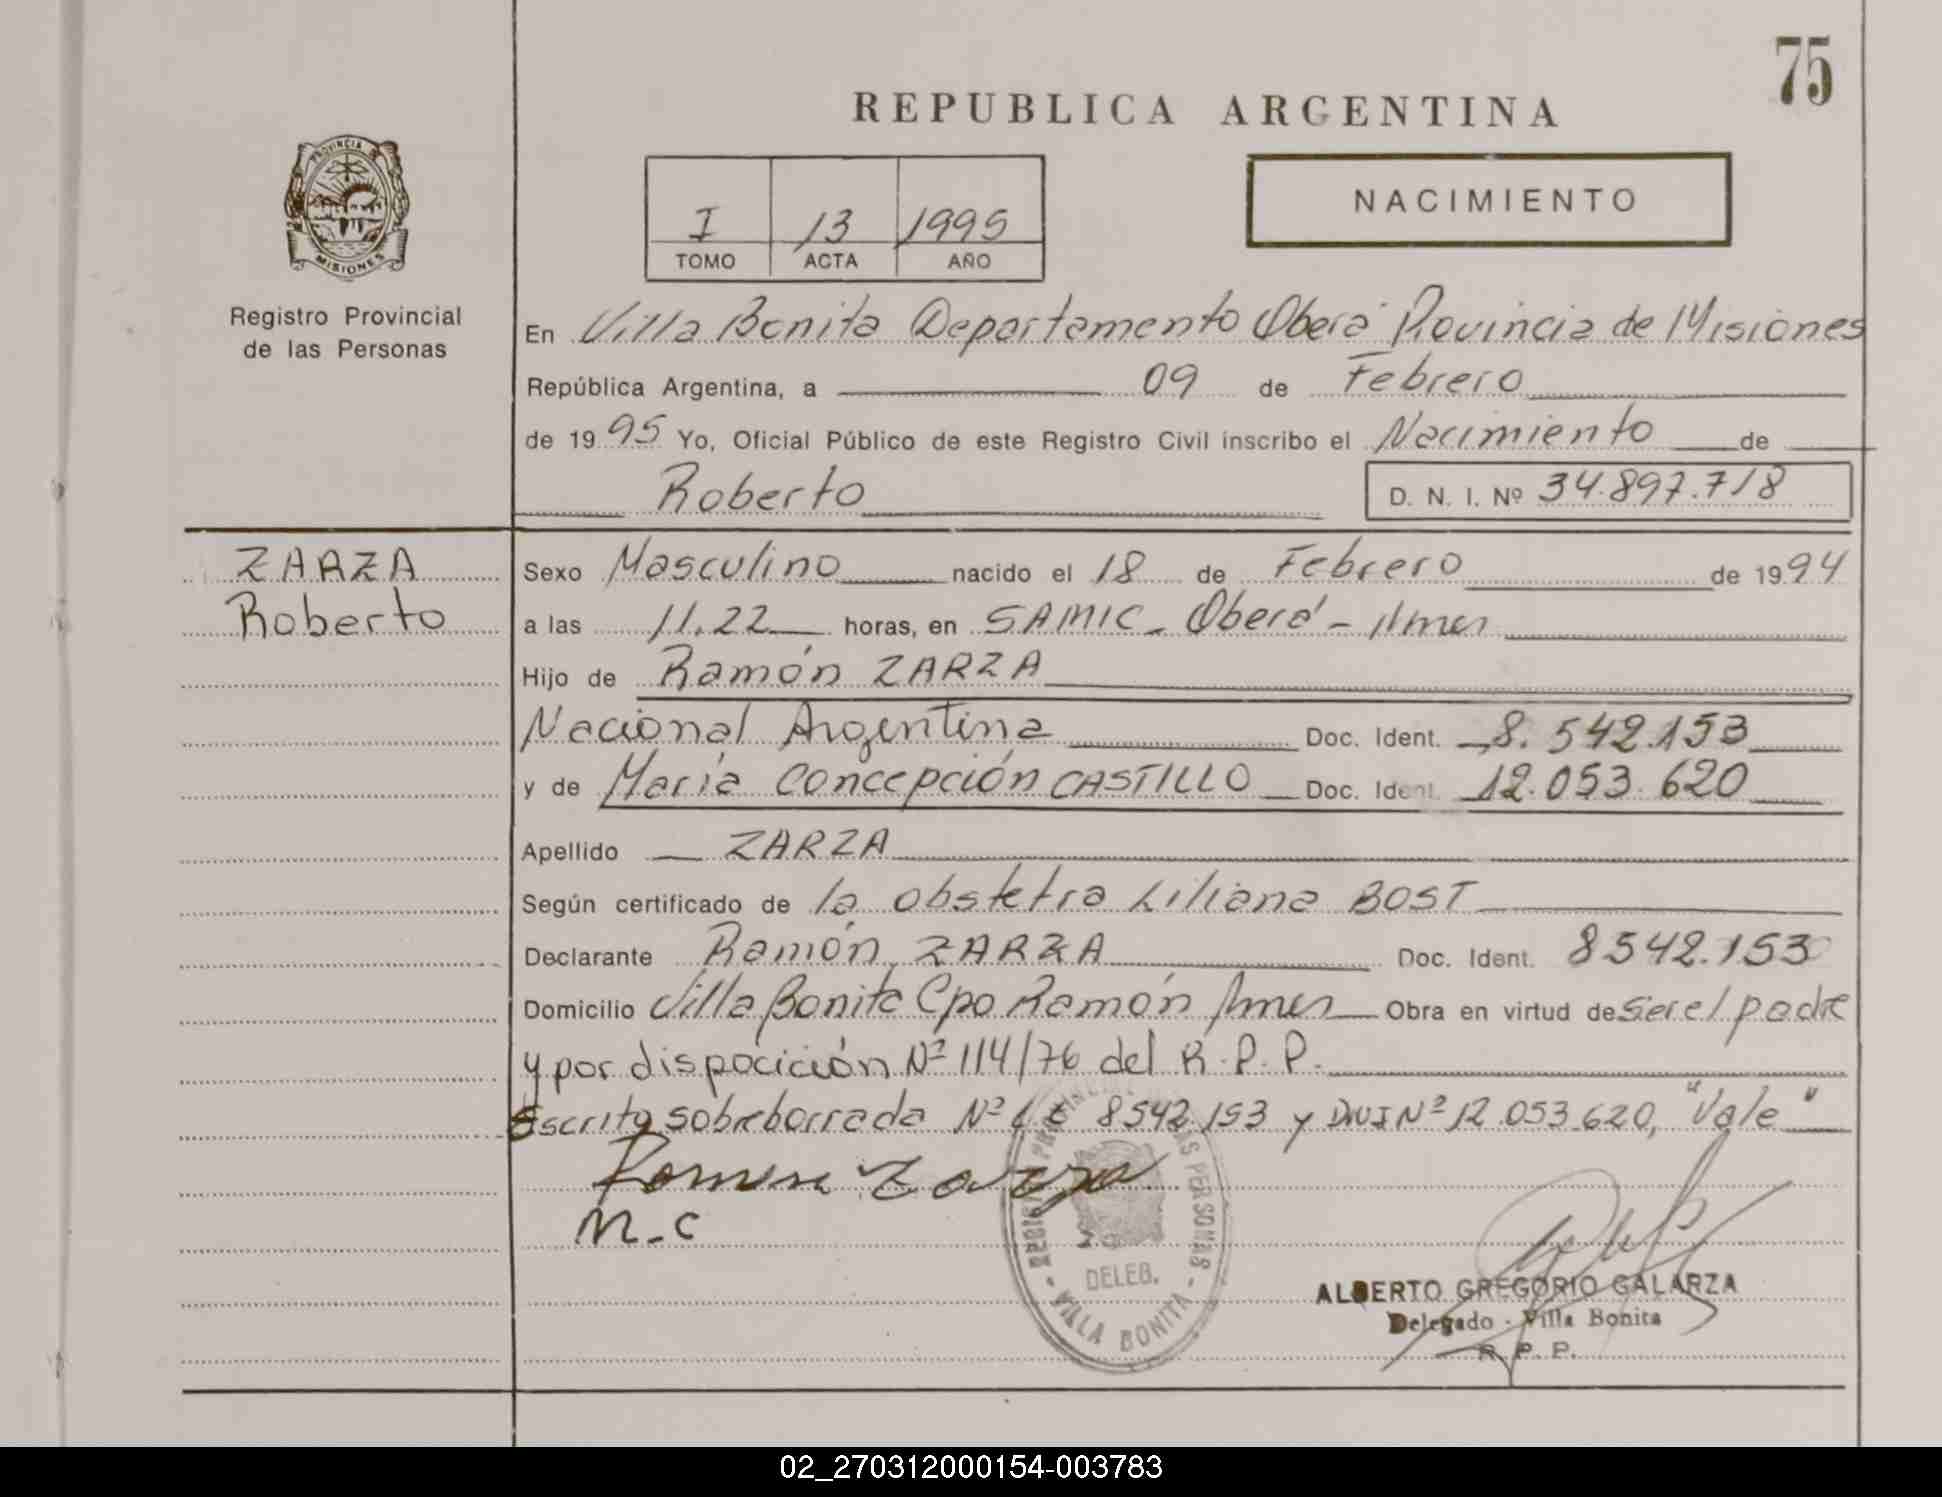 75
REPUBLICA ARGENTINA
PROVINCIA DE
MISIONES
Registro Provincial
de las Personas
I 13 1995
TOMO ACTA AÑO
NACIMIENTO
En Villa Bonita Departamento Oberá Provincia de Misiones
República Argentina, a 09 de Febrero
de 1995 Yo, Oficial Público de este Registro Civil inscribo el Nacimiento de
Roberto D. N. I. Nº 34.897.718
ZARZA
Roberto
Sexo Masculino nacido el 18 de Febrero de 1994
a las 11.22 horas, en SAMIC - Oberá - Mnes
Hijo de Ramón ZARZA
Nacional Argentina Doc. Ident. 8.542.153
y de María Concepción CASTILLO Doc. Ident. 12.053.620
Apellido ZARZA
Según certificado de la obstetra Liliana BOST
Declarante Ramón ZARZA Doc. Ident. 8542.153
Domicilio Villa Bonita Cpo Ramón Mnes Obra en virtud de ser el padre
y por dispocición Nº 114/76 del R.P.P.
Escrito sobreborrada Nº L E 8542.153 y DNI Nº 12.053.620, "Vale"
Ramon Zarza
M.C
REGISTRO PROVINCIAL DE LAS PERSONAS
DELEG.
- VILLA BONITA -
ALBERTO GREGORIO GALARZA
Delegado - Villa Bonita
R. P. P.
02_270312000154-003783